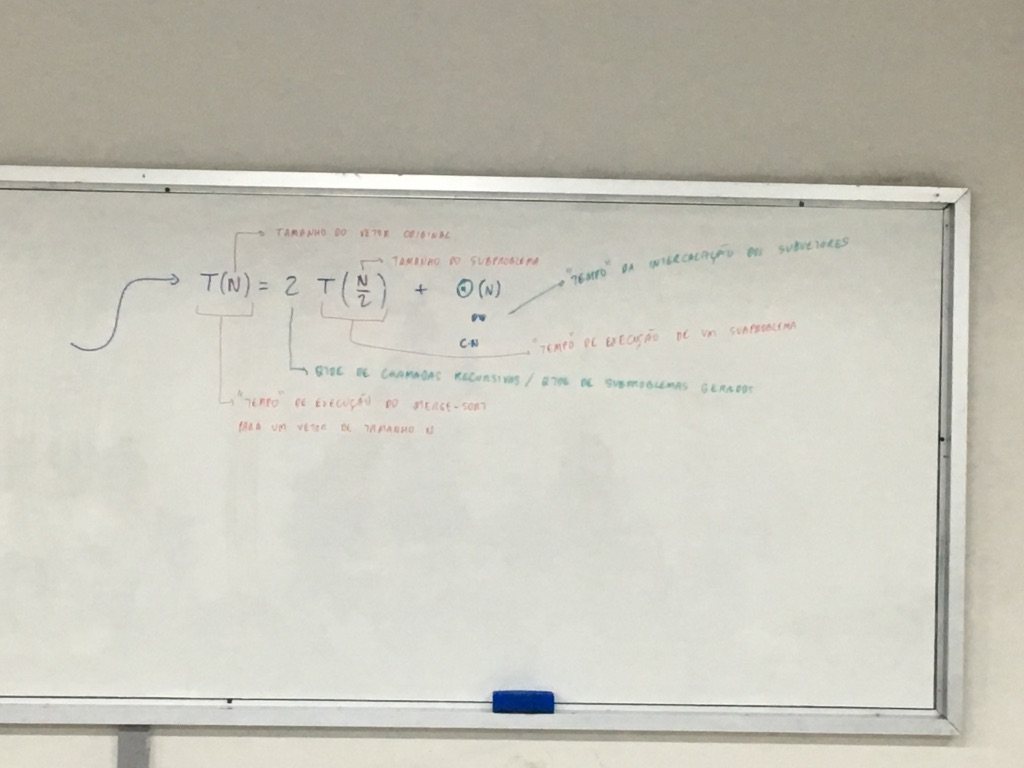 TAMANHO DO VETOR ORIGINAL
TAMANHO DO SUBPROBLEMA
"TEMPO" DA INTERCALAÇÃO DOS SUBVETORES
T(N) = 2 T(N/2) + Θ(N)
OU
C·N
"TEMPO" DE EXECUÇÃO DE UM SUBPROBLEMA
QTDE DE CHAMADAS RECURSIVAS / QTDE DE SUBPROBLEMAS GERADOS
"TEMPO" DE EXECUÇÃO DO MERGE-SORT
PARA UM VETOR DE TAMANHO N